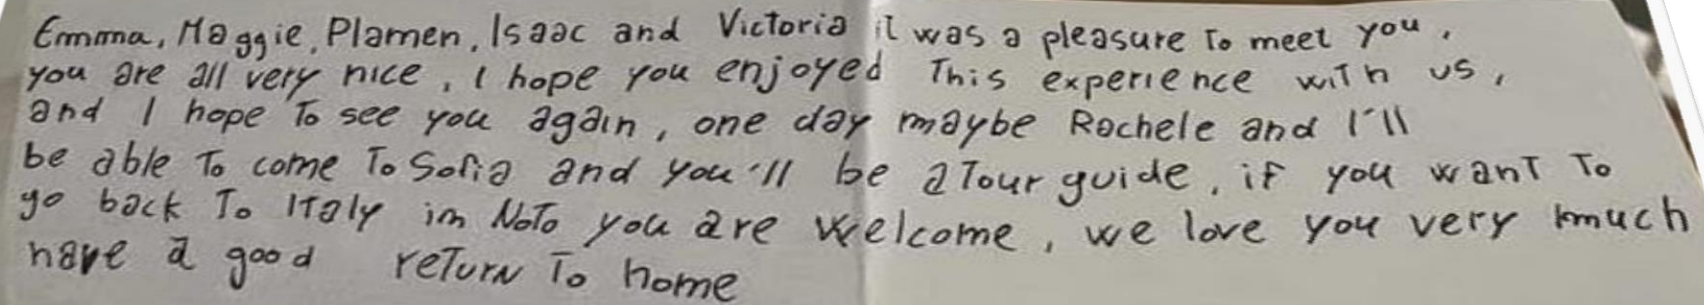 Emma, Maggie, Plamen, Isaac and Victoria it was a pleasure To meet you,
you are all very nice, I hope you enjoyed This experience with us,
and I hope To see you again, one day maybe Rachele and I'll
be able To come To Sofia and you'll be a Tour guide, if you want To
go back To Italy im NoTo you are welcome, we love you very much
have a good reTurn To home